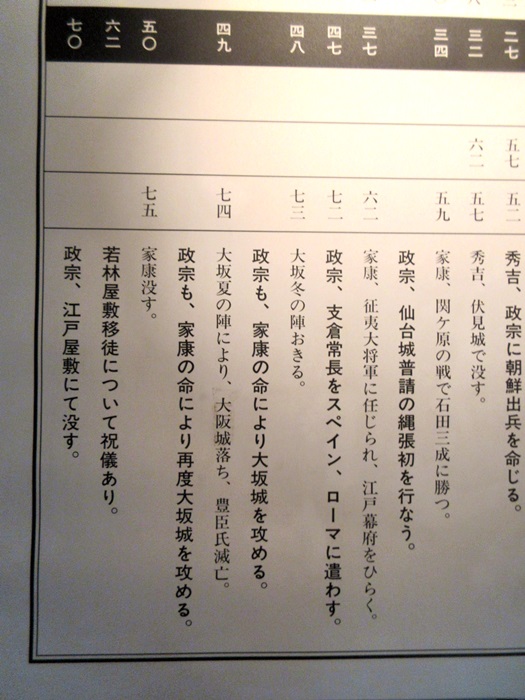 二七 五七 五二 秀吉、政宗に朝鮮出兵を命じる。
三二 六二 五七 秀吉、伏見城で没す。
三四 五九 家康、関ケ原の戦で石田三成に勝つ。
政宗、仙台城普請の縄張初を行なう。
三七 六二 家康、征夷大将軍に任じられ、江戸幕府をひらく。
四七 七二 政宗、支倉常長をスペイン、ローマに遣わす。
四八 七三 大坂冬の陣おきる。
政宗も、家康の命により大坂城を攻める。
四九 七四 大坂夏の陣により、大阪城落ち、豊臣氏滅亡。
政宗も、家康の命により再度大坂城を攻める。
五〇 七五 家康没す。
六二 若林屋敷移徒について祝儀あり。
七〇 政宗、江戸屋敷にて没す。